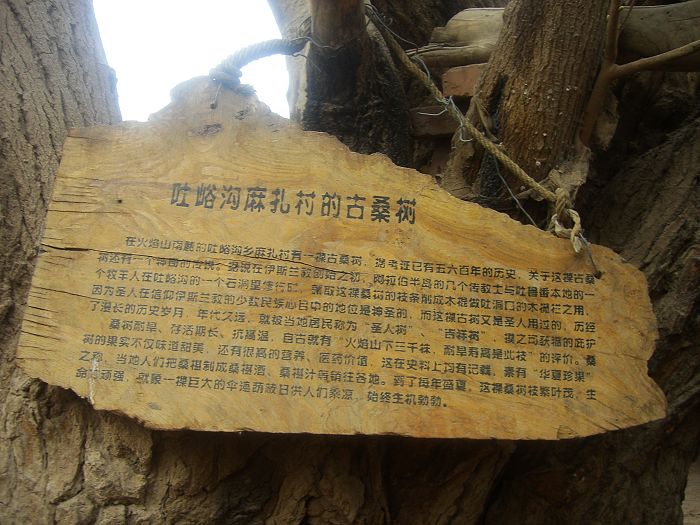 吐峪沟麻扎村的古桑树
在火焰山南麓的吐峪沟乡麻扎村有一棵古桑树，据考证已有五六百年的历史，关于这棵古桑
树还有一个神奇的传说。据说在伊斯兰教创始之初，阿拉伯半岛的几个传教士与吐鲁番本地的一
个牧羊人在吐峪沟的一个石洞里修行时，曾取这棵桑树的枝条削成木棍做吐洞口的木棍栏之用，
因为圣人在信仰伊斯兰教的少数民族心目中的地位是神圣的，而这棵古树又是圣人用过的，历经
了漫长的历史岁月，年代久远，就被当地居民称为“圣人树”、“吉祥树”，摸之可获福的庇护
桑树耐旱、存活期长、抗高温，自古就有“火焰山下三千秋，耐旱寿高是此枝”的评价。桑
树的果实不仅味道甜美，还有很高的营养、医药价值，这在史料上均有记载，素有“华夏珍果”
之称，当地人们把桑椹制成桑椹酒、桑椹汁等销往各地。到了每年盛夏，这棵桑树枝繁叶茂，生
命力顽强，就像一棵巨大的伞遮荫蔽日供人们乘凉，始终生机勃勃。